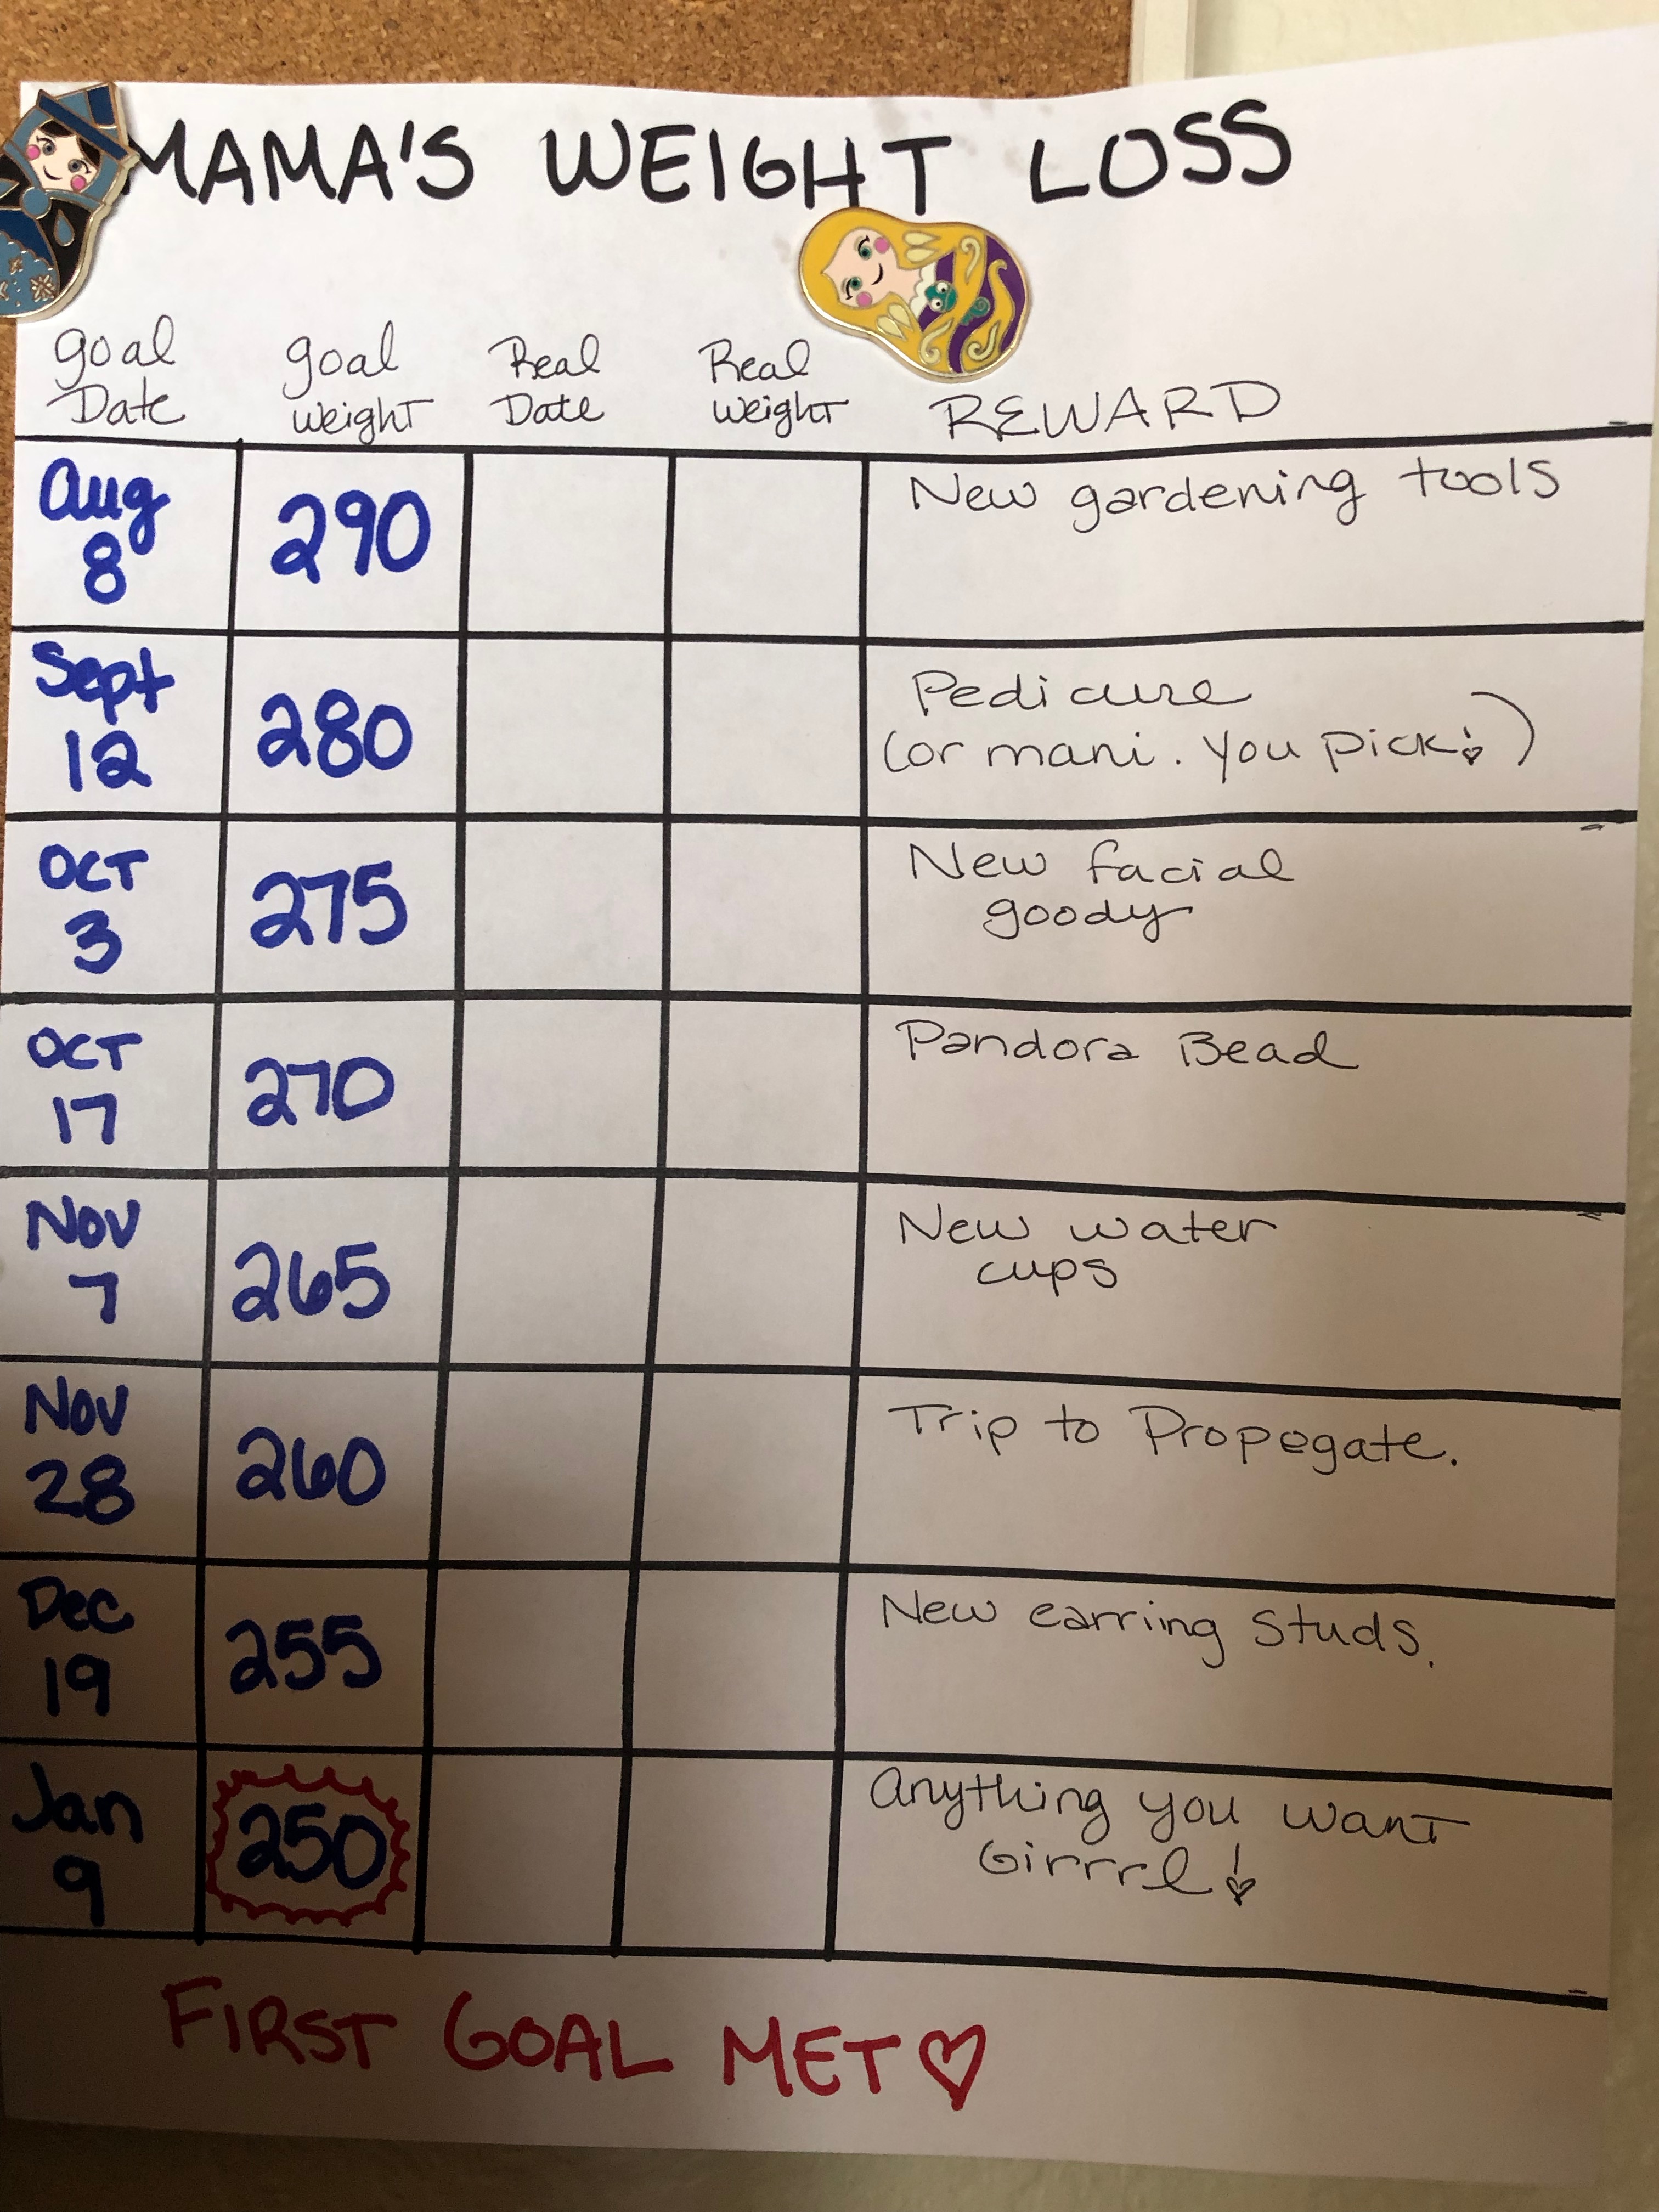 MAMA'S WEIGHT LOSS
goal Date
goal weight
Real Date
Real weight
REWARD
Aug 8
290
New gardening tools
Sept 12
280
Pedicure
(or mani. You pick!)
OCT 3
275
New facial
goody
OCT 17
270
Pandora Bead
Nov 7
265
New water
cups
Nov 28
260
Trip to Propegate.
Dec 19
255
New earring studs.
Jan 9
250
Anything you want
Girrrl!
FIRST GOAL MET